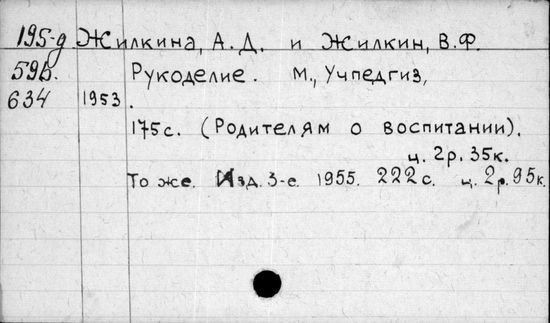 195-д Жилкина, А.Д. и Жилкин, В.Ф.
59б. Рукоделие. М., Учпедгиз,
634 1953.
175с. (Родителям о воспитании).
ц. 2р. 35к.
То же. Изд. 3-е. 1955. 222с. ц. 2р. 95к.